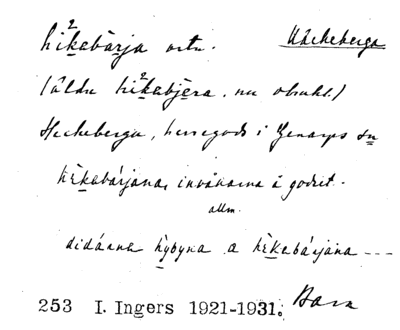 hìkabàrja ortn. Häckeberga
(äldre hìkabjèra, nu obrukl.)
Heckeberga, herregods i Genarps sn
hèkabárjana, invånarna å godset.
allm.
didáana hỳbyna a hèkabárjana ---
253 I. Ingers 1921-1931. Bara